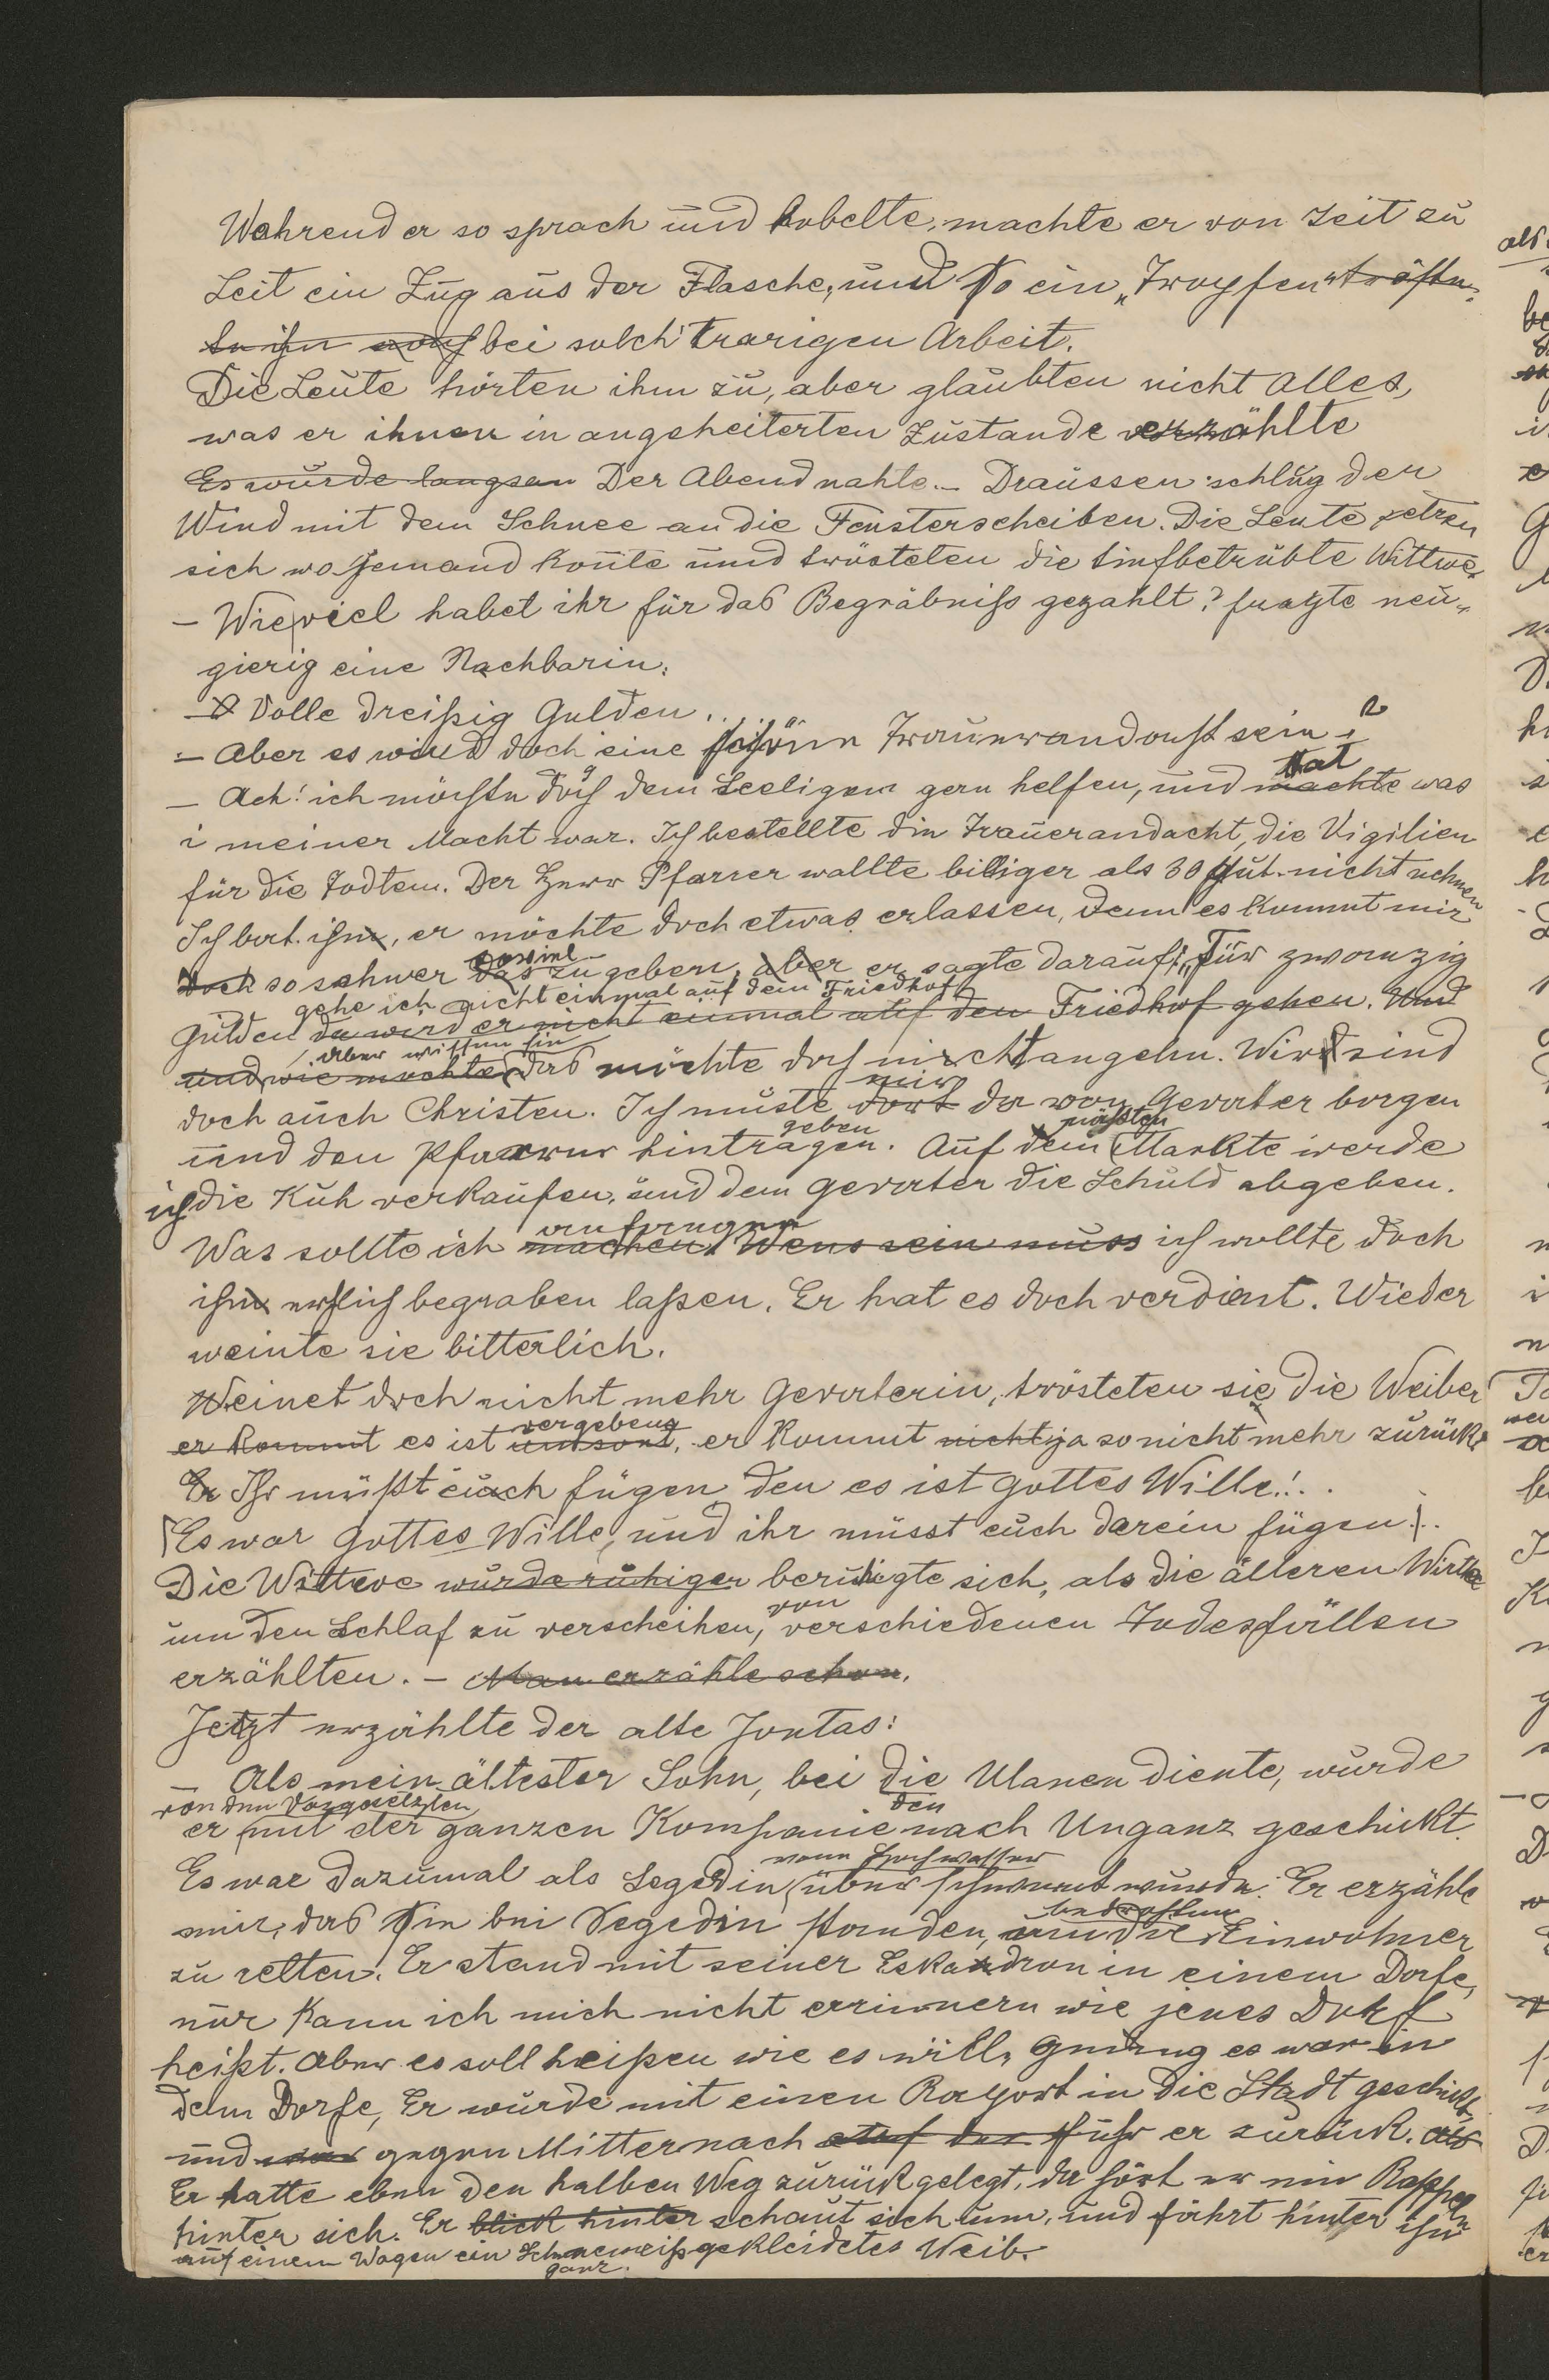 Wahrend er so sprach und hobelte, machte er von Zeit zu
Zeit ein Zug aus der Flasche, und so ein „Tropfen“ tröste-
te ihn auch bei solch' trarigen Arbeit.
Die Leute hörten ihm zu, aber glaubten nicht Alles,
was er ihnen in angeheiterten Zustande erzählte
Es wurde langsam Der Abend nahte. – Draussen schlug der
Wind mit dem Schnee an die Fensterscheiben. Die Leute setzten
sich wo Jemand konnte und trösteten die tiefbetrübte Wittwe.
– Wieviel habet ihr für das Begräbniss gezahlt? fragte neu-
gierig eine Nachbarin.
– Volle dreißig Gulden..
– Aber es wird doch eine schöne Trauerandacht sein?
– Ach! ich möchte doch dem Seeligen gern helfen, und machte tat was
i meiner Macht war. Ich bestellte die Trauerandacht, die Vigilien
für die Todten. Der Herr Pfarrer wollte billiger als 30 Gul. nicht nehmen
Ich bat ihn, er möchte doch etwas erlassen, denn es kommt mir
doch so schwer das soviel zu geben, aber er sagte darauf: „Für zwanzig
gehe ich nicht einmal auf dem Friedhof
Gulden da wird er nicht einmal auf den Friedhof gehen. Und
Aber wissen sie
und wie mochte das möchte doch nicht angehn. Wir sind
doch auch Christen. Ich musste dort mir da von Gevater borgen
und den Pfarrer hintragen geben. Auf dem nächsten Markte werde
ich die Kuh verkaufen, und dem Gevater die Schuld abgeben.
Was sollte ich machen anfangen Wens sein muss ich wollte doch
ihn ehrlich begraben laßen. Er hat es doch verdient. Wieder
weinte sie bitterlich.
Weinet doch nicht mehr Gevaterin, trösteten sie die Weiber
er kommt es ist umsonst vergebens, er kommt nicht ja so nicht mehr zurück.
Er Ihr müßt euch fügen den es ist Gottes Wille!..
Es war Gottes Wille, und ihr müsst euch darein fügen!..
Die Wittwe wurde ruhiger beruhigte sich, als die älteren Wirthe
um den Schlaf zu verscheihen, von verschiedenen Todesfällen
erzählten. – Man erzähle schon.
Jetzt erzählte der alte Jontas:
– Als mein ältester Sohn, bei die den Ulanen diente, wurde
von den Vorgesetzten
er mit der ganzen Kompanie nach Unganz geschickt.
Es war dazumal als Segedin vom Hochwasser überschwemmt wurde. Er erzähle
mir, das sie bei Segedin standen, um die bedrohten Einwohner
zu retten. Er stand mit seiner Eskadron in einem Dorfe,
nur kann ich mich nicht errinnern wie jenes Dorf
heißt. Aber es soll heißen wie es will, genug es war in
dem Dorfe, Er wurde mit einen Raport in die Stadt geschickt,
und gegen Mitternach fuhr er zurück. Als
Er hatte eben den halben Weg zurückgelegt, da hört er ein Rasseln
hinter sich. Er blickt hinter schaut sich um, und fährt hinter ihm
auf einem Wagen ein ganz Schneeweiß gekleidetes Weib.